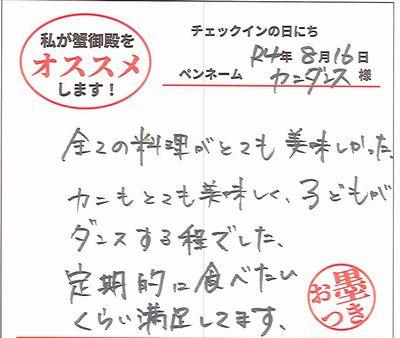 私が蟹御殿を
オススメ
します！
チェックインの日にち
R4年 8月16日
ペンネーム カニダンス 様
全ての料理がとても美味しかった。
カニもとても美味しく、子どもが
ダンスする程でした。
定期的に食べたい
くらい満足してます。
お墨
つき